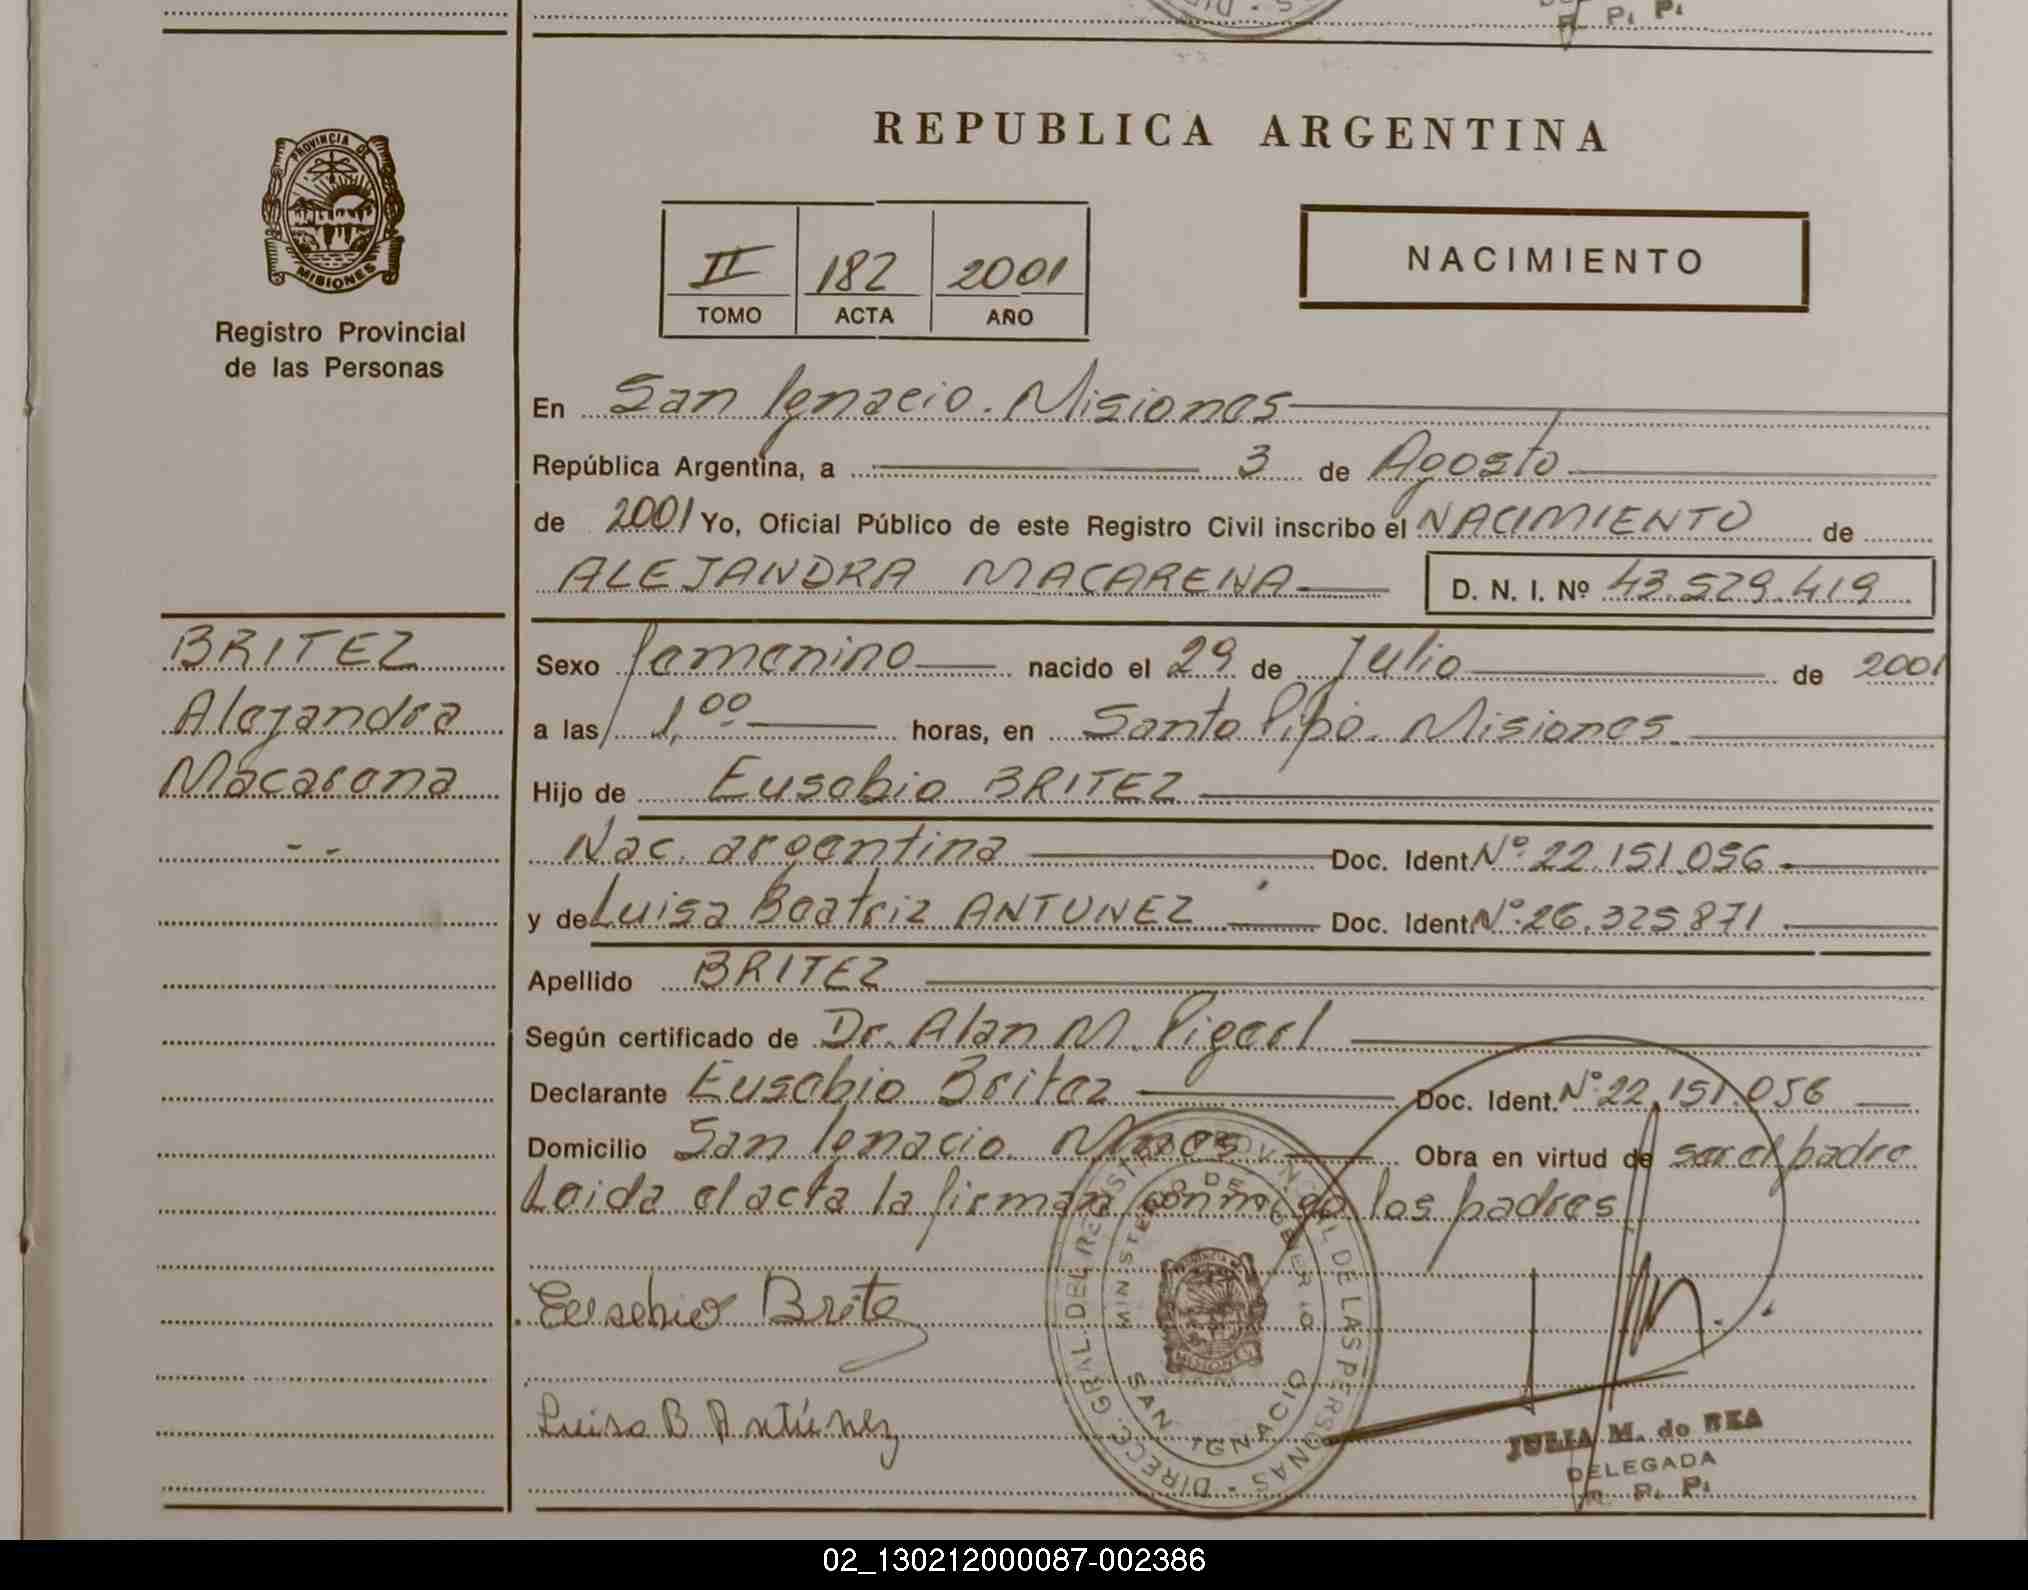 R. P. P.
PROVINCIA DE
MISIONES
Registro Provincial
de las Personas
REPUBLICA ARGENTINA
II 182 2001
TOMO ACTA AÑO
NACIMIENTO
En San Ignacio. Misiones
República Argentina, a 3 de Agosto
de 2001 Yo, Oficial Público de este Registro Civil inscribo el NACIMIENTO de
ALEJANDRA MACARENA D. N. I. Nº 43.529.419
BRITEZ
Alejandra
Macarena
Sexo femenino nacido el 29 de Julio de 2001
a las 1,00 horas, en Santo Pipó. Misiones
Hijo de Eusebio BRITEZ
Nac. argentina Doc. Ident. Nº. 22.151.056
y de Luisa Beatriz ANTUNEZ Doc. Ident. Nº. 26.325.871
Apellido BRITEZ
Según certificado de Dr. Alan M.
Declarante Eusebio Britez Doc. Ident. Nº 22.151.056
Domicilio San Ignacio. Mnes Obra en virtud de ser el padre
Leida el acta la firman conmigo los padres
Eusebio Britez
Luisa B Antúnez
DIRECC. GRAL. DEL REGISTRO PROVINCIAL DE LAS PERSONAS
MINISTERIO DE GOBIERNO
MISIONES
SAN IGNACIO
JULIA M. de REA
DELEGADA
R. P. P.
02_130212000087-002386